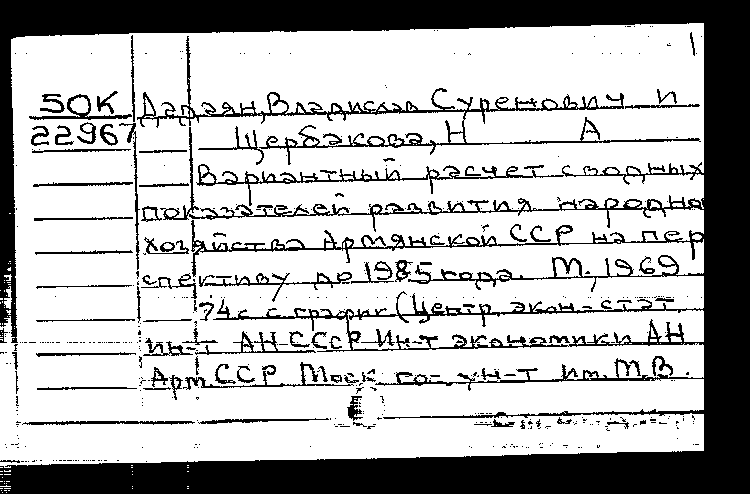 1
50К Дараян, Владислав Суренович и
22967 Щербакова, Н А
Вариантный расчет сводных
показателей развития народно
хозяйства Армянской ССР на пер
спективу до 1985 года. М., 1969
74с с график (Центр. экон-стат
ин-т АН СССР Ин-т экономики АН
Арм. ССР. Моск го- ун-т им. М.В.